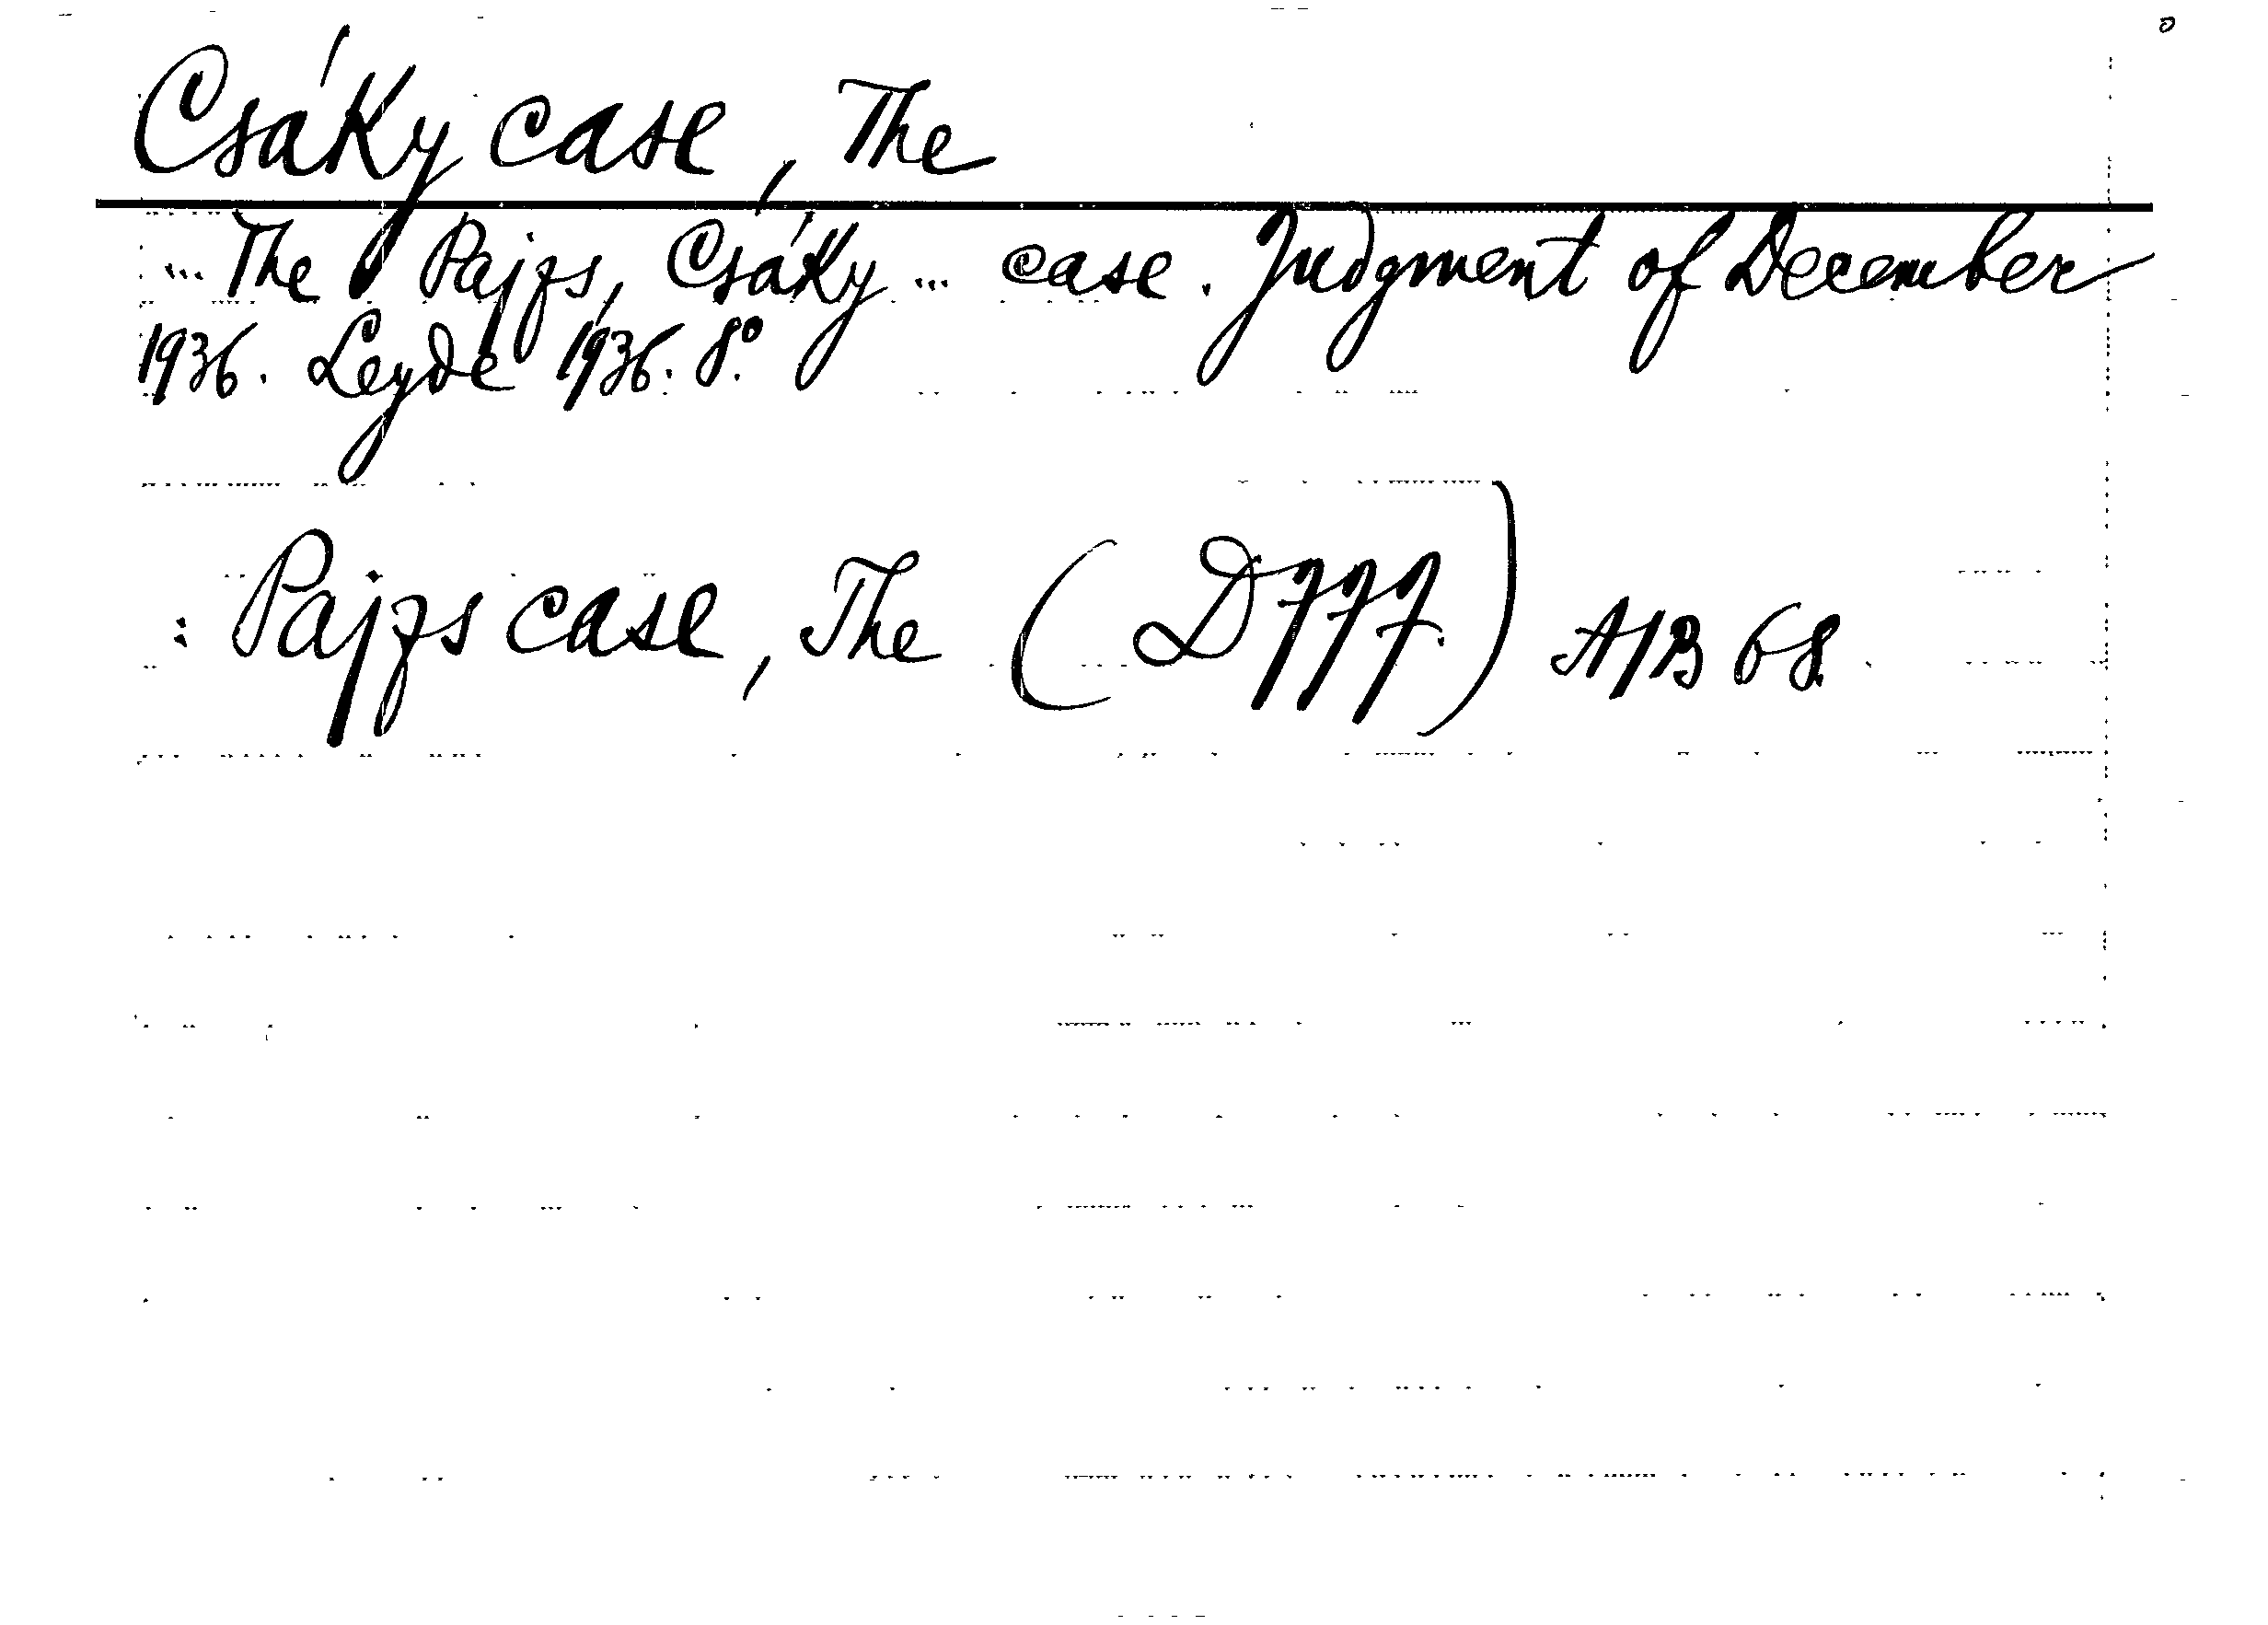 Csáky case, The
... The Pajzs, Csáky ... case. Judgment of December
1936. Leyde 1936. 8°.
: Pajzs case, The (D777.) A/B 68.